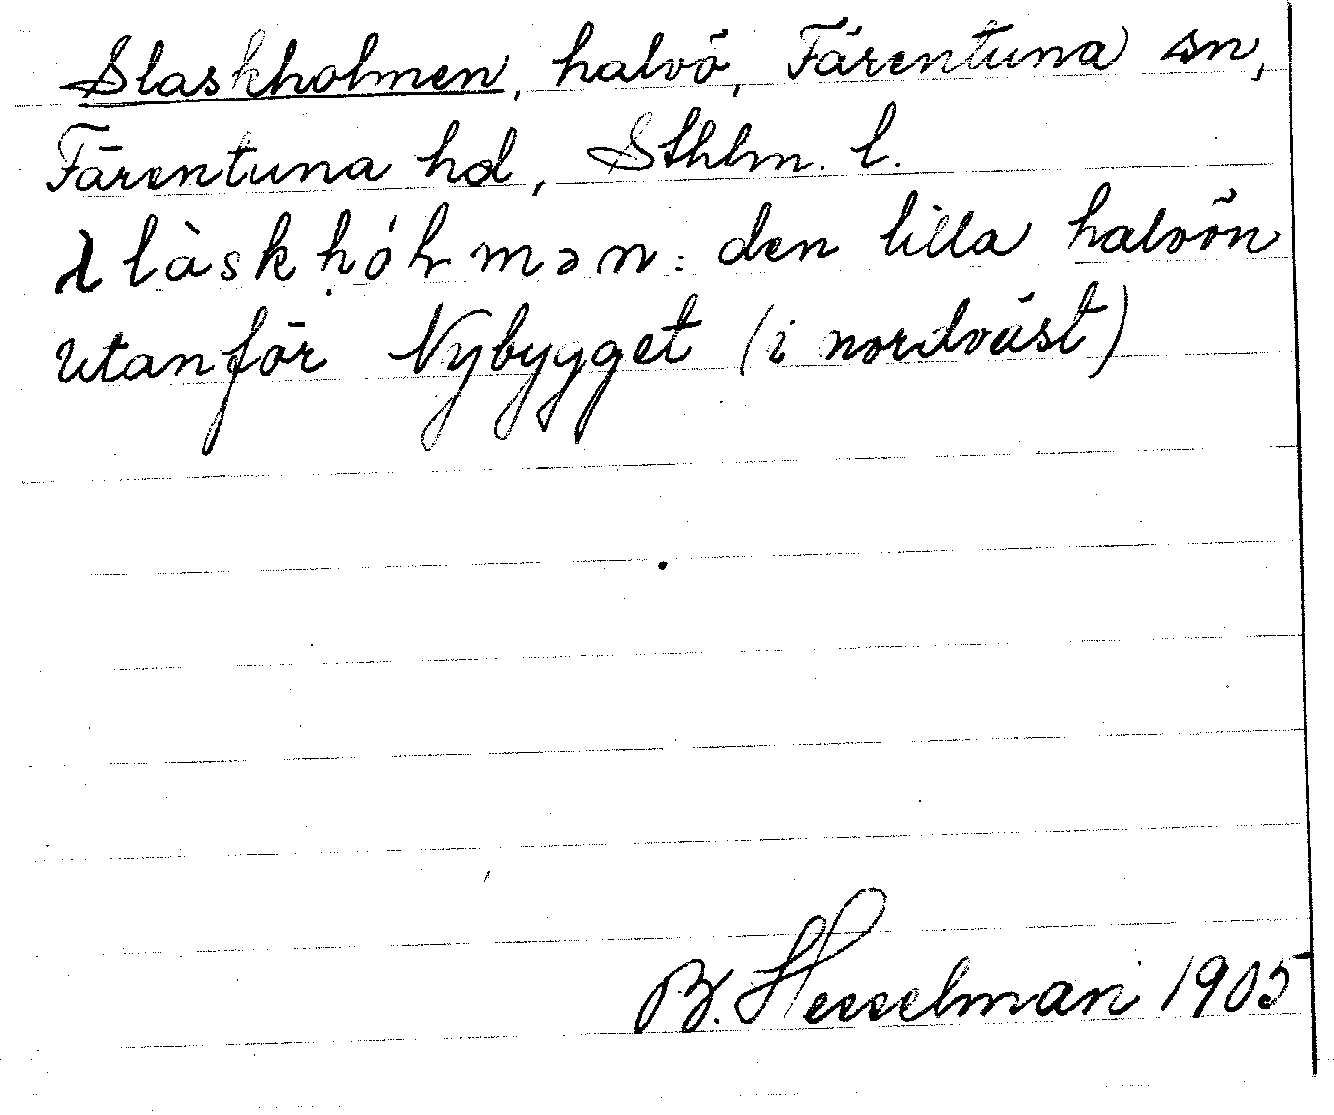 Slaskholmen, halvö, Färentuna sn,
Färentuna hd, Sthlm. l.
slàskhól mən: den lilla halvön
utanför Nybygget (i nordväst)
B. Hesselman 1905